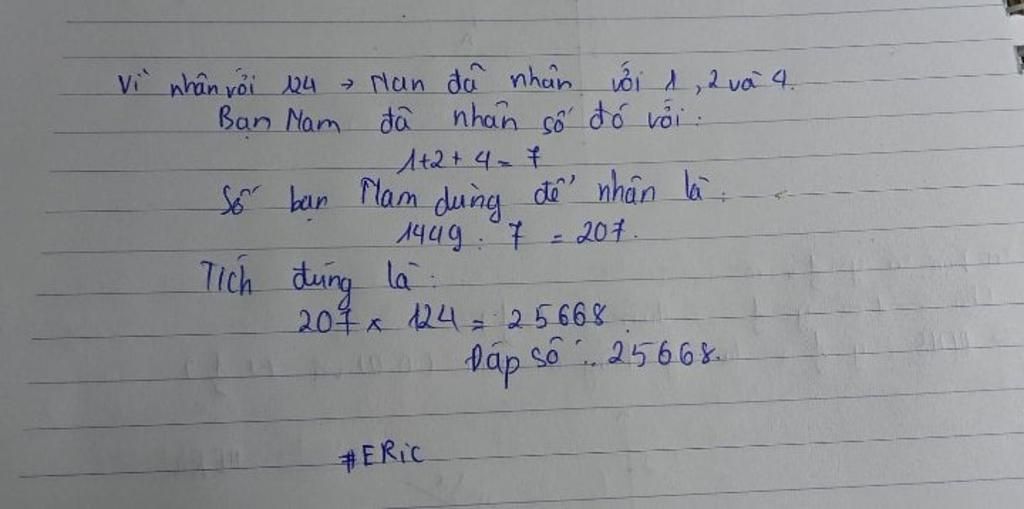 Vì nhân với 124 → Nam đã nhân với 1, 2 và 4.
Bạn Nam đã nhân số đó với:
1+2+4=7
Số bạn Nam dùng để nhân là:
1449 : 7 = 207.
Tích đúng là:
207 x 124 = 25668.
Đáp số: 25668.
#ERiC